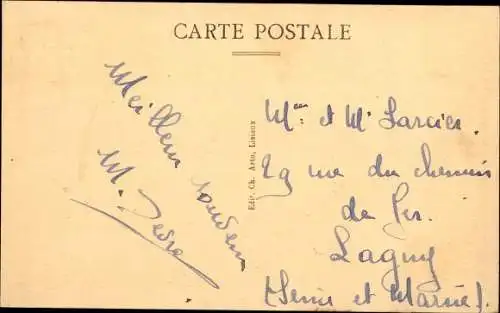 CARTE POSTALE
Meilleur souvenir
M.
Edit. Ch. Aréo, Lisieux
Mme et Mr Larcier
29 rue du chemin
de fer.
Lagny
(Seine et Marne).